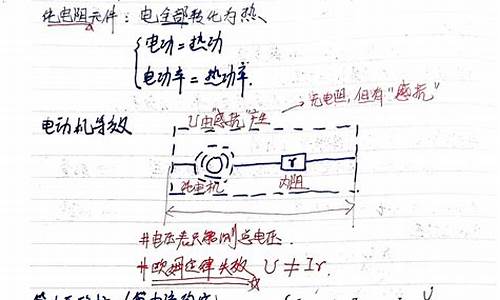 纯电阻元件：电全部转化为热、
电功=热功
电功率=热功率.
无电阻，但有"感抗"
电动机等效
U由"感抗"产生
r
纯电机
内阻
#电压表只能测总电压.
#欧姆定律失效 U≠Ir.